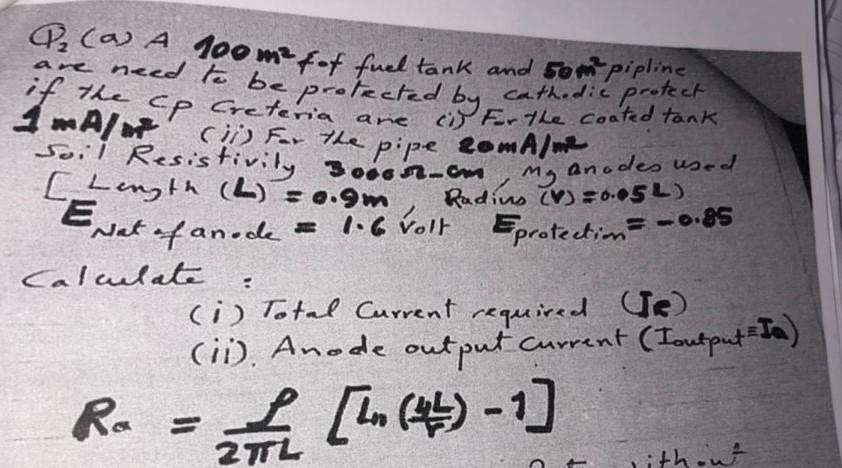 Q₂ (a) A 100 m² of fuel tank and 50m² pipline
are need to be protected by cathodic protect
if the CP Creteria are (i) For the coated tank
1 mA/m² (ii) For the pipe 20mA/m²
Soil Resistivity 3000Ω-cm, Mg anodes used
[ Length (L) = 0.9m, Radius (r) = 0.05L)
E Nat of anode = 1.6 Volt E protection = -0.85
Calculate :
(i) Total Current required (Ie)
(ii). Anode output current (Ioutput≡Ia)
Ra = ρ/2πL [Ln (4L/r) - 1]
without